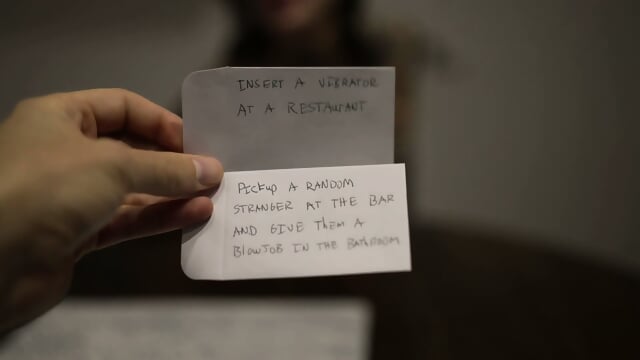 INSERT A VIBRATOR
AT A RESTAURANT
PICKUP A RANDOM
STRANGER AT THE BAR
AND GIVE THEM A
BLOWJOB IN THE BATHROOM